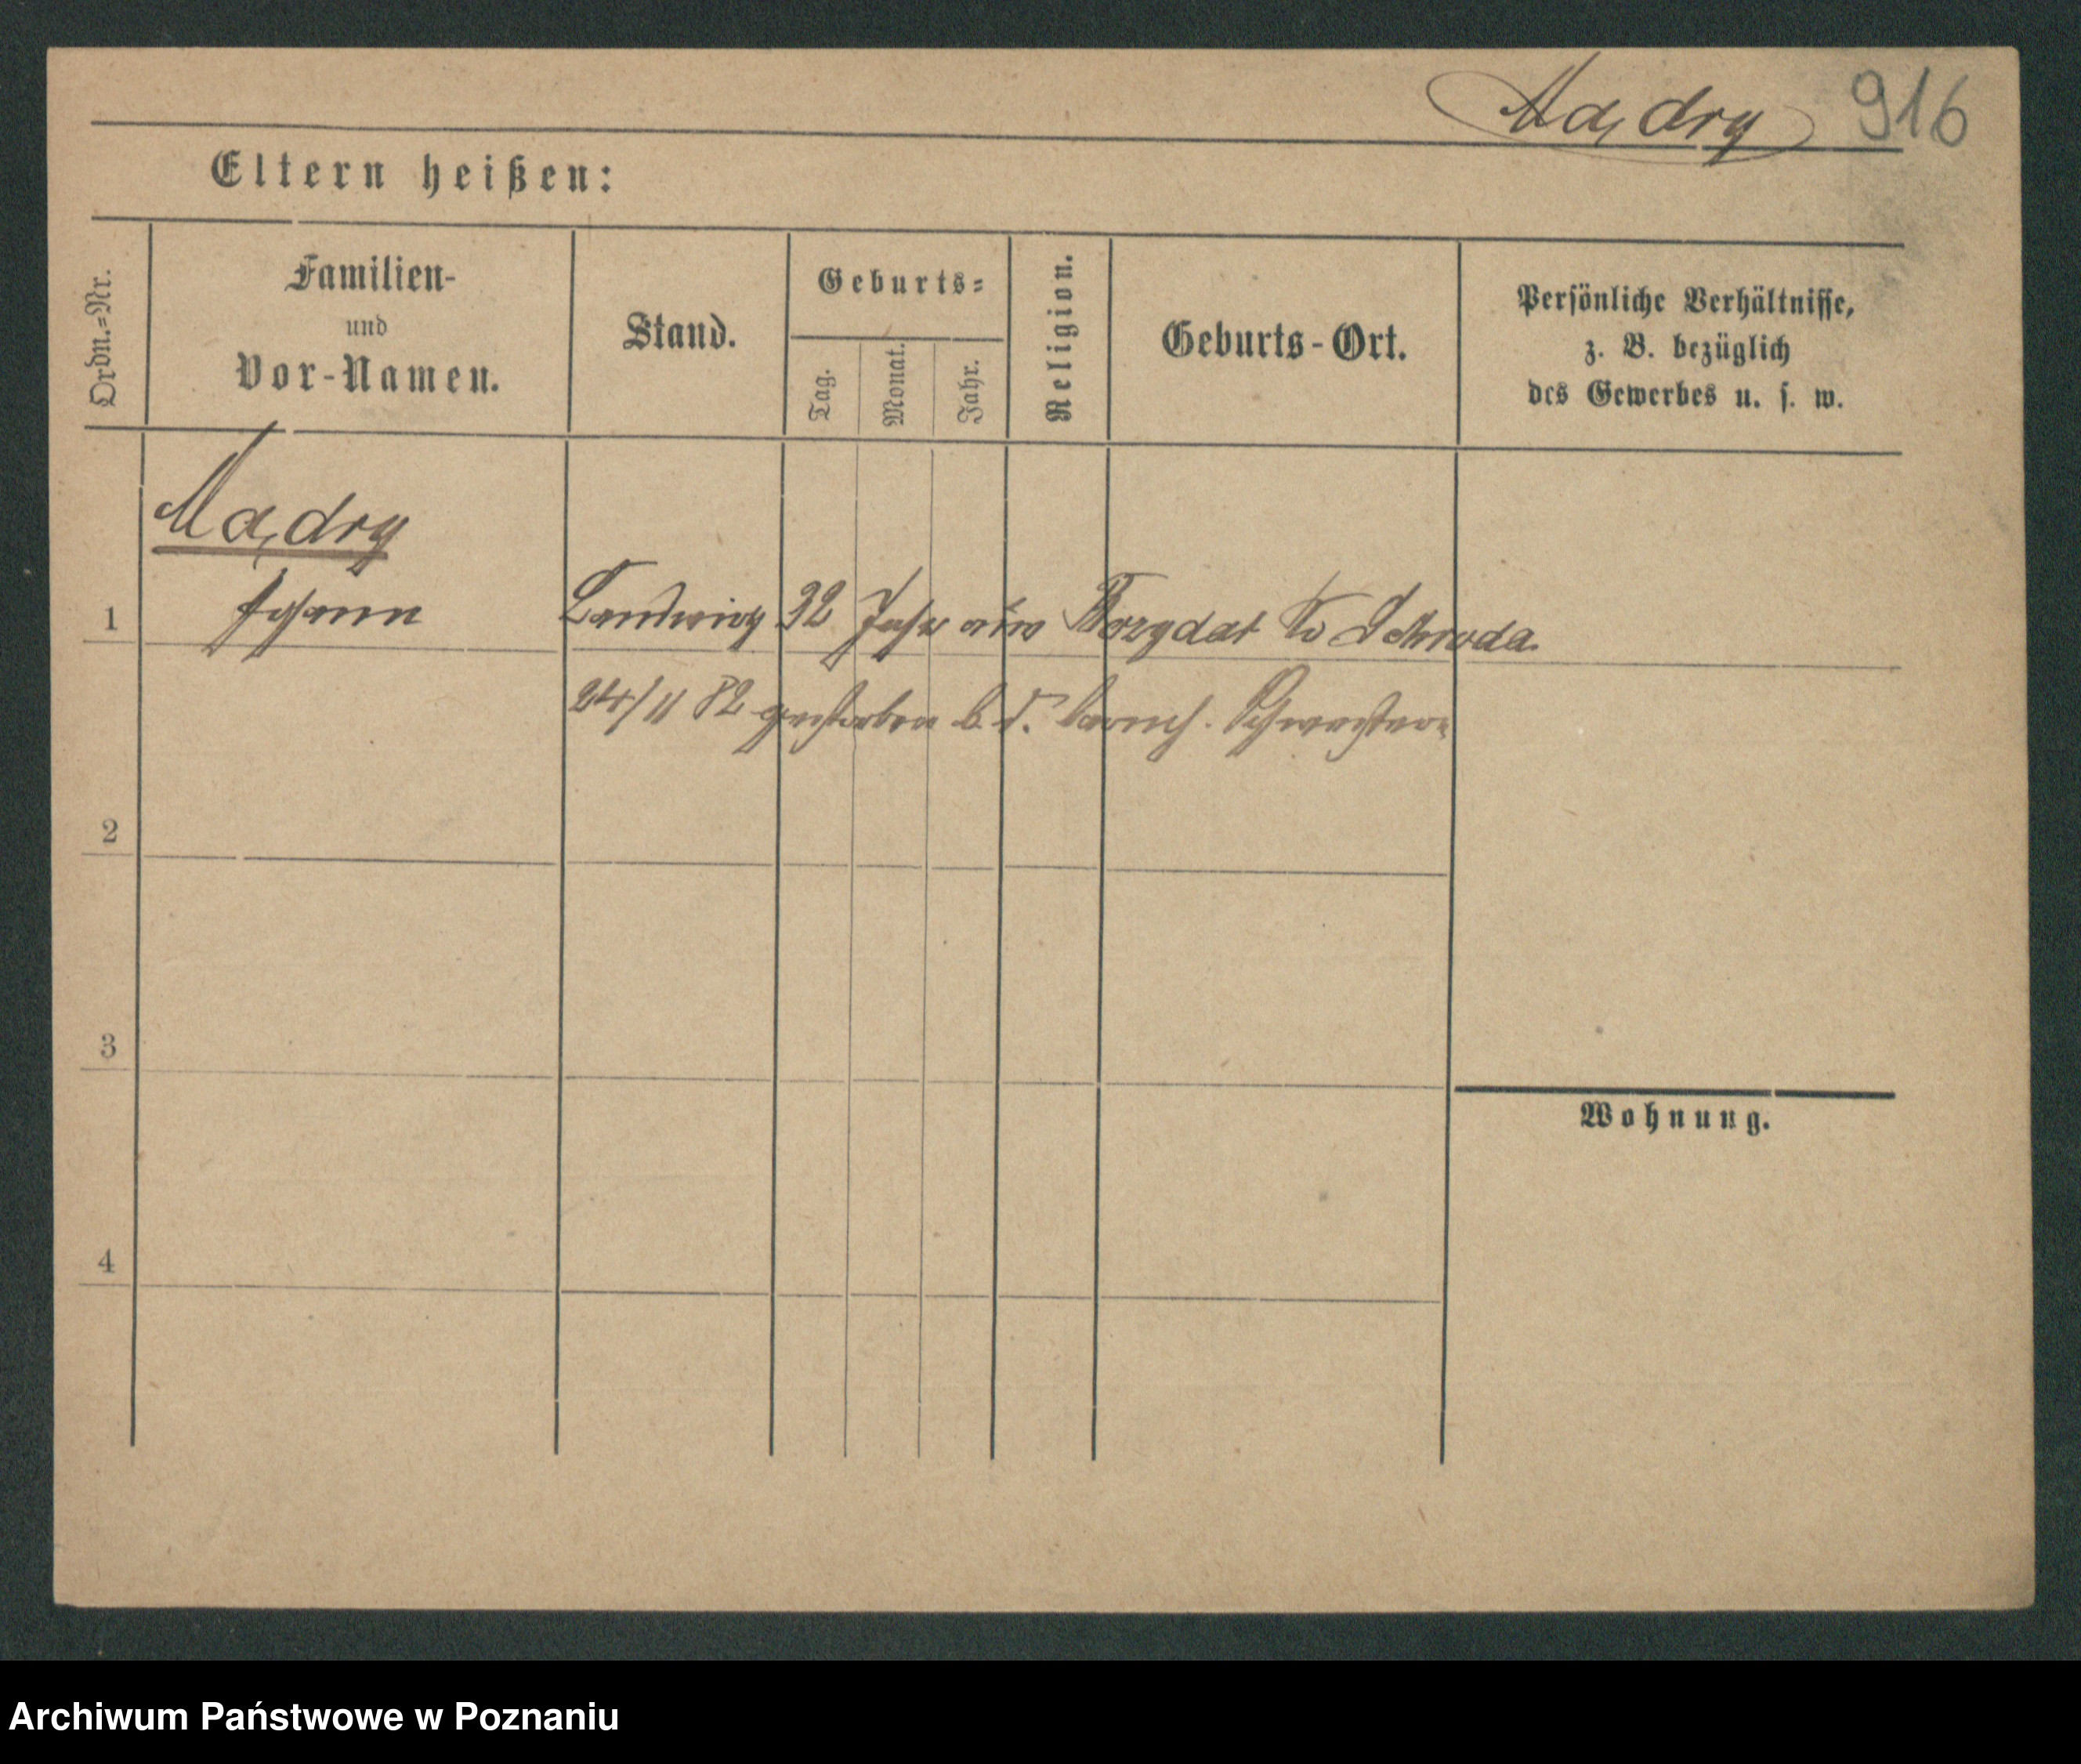 Mądry 916
Eltern heißen:
Ordn.=Nr.
Familien-
und
Vor-Namen.
Stand.
Geburts=
Tag.
Monat.
Jahr.
Religion.
Geburts-Ort.
Persönliche Verhältnisse,
z. B. bezüglich
des Gewerbes u. s. w.
Mądry
1 Johann Landwirth 32 Jahr aus Schroda
24/11 82 gestorben b. d. barmh. Schwestern
2
3
Wohnung.
4
Archiwum Państwowe w Poznaniu